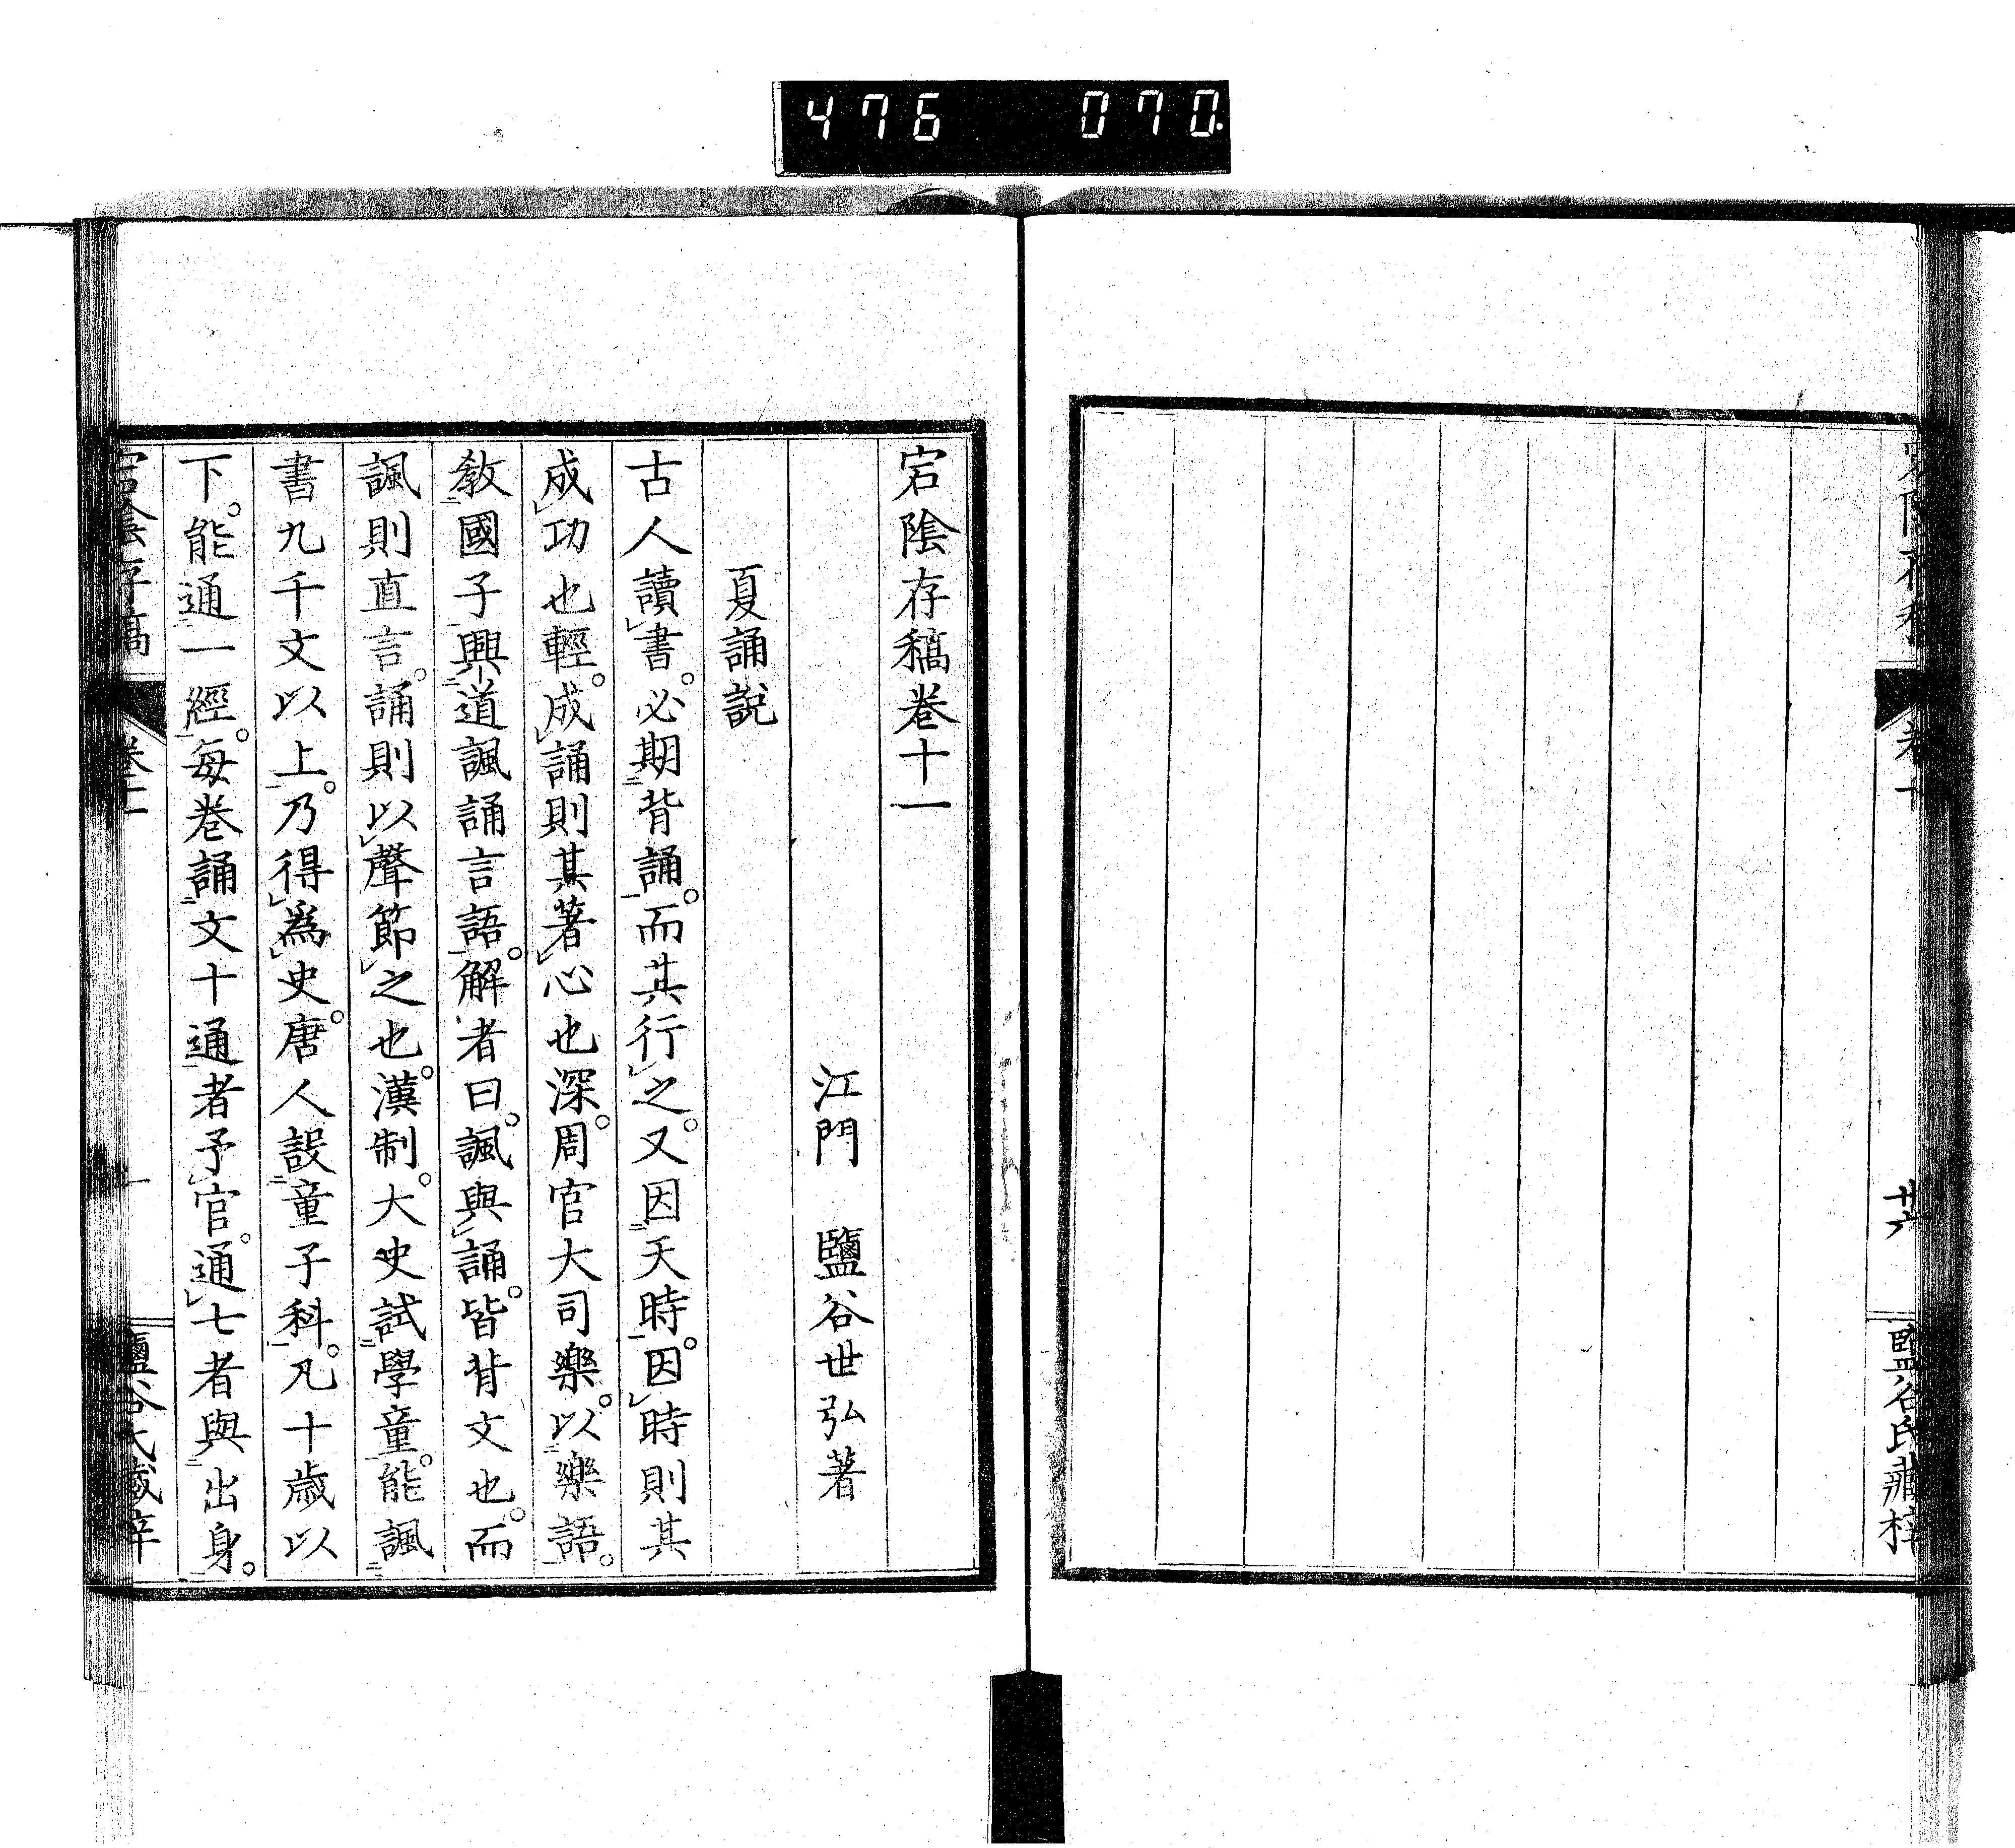 476 070.
卷十
廿六
鹽谷氏藏梓
宕陰存稿卷十一
江門 鹽谷世弘著
夏誦説
古人讀書。必期背誦。而其行之。又因天時。因時則其
成功也輕。成誦則其著心也深。周官大司樂。以樂語。
敎國子興道諷誦言語。解者曰。諷與誦。皆背文也。而
諷則直言。誦則以聲節之也。漢制。大史試學童。能諷
書九千文以上。乃得爲史。唐人設童子科。凡十歲以
下。能通一經。每卷誦文十通者予官。通七者與出身。
宕陰存稿
卷十一
一
鹽谷氏藏梓